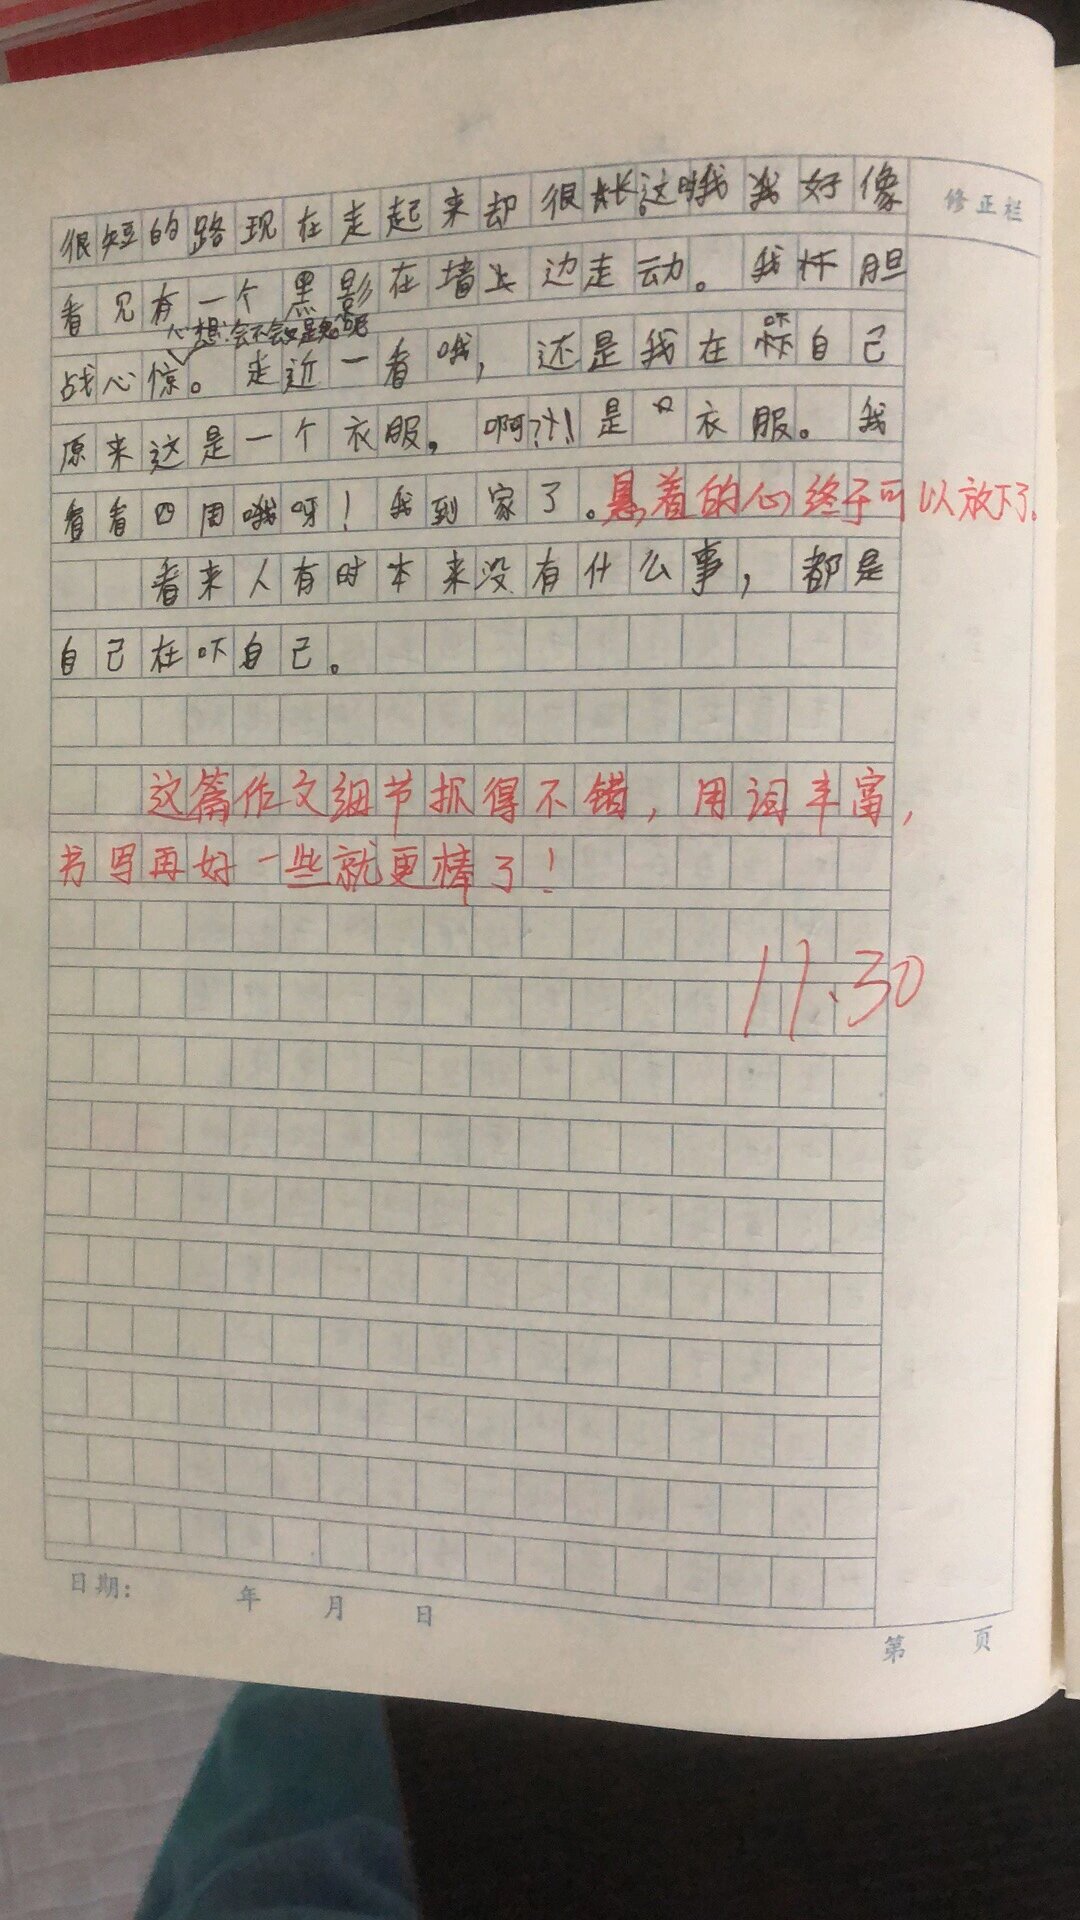 很短的路现在走起来却很长。这哦我好像
修正栏
看见有一个黑影在墙上边走动。我胆
心想:会不会又是鬼呢
战心惊。走近一看哦,还是我在吓自己
原来这是一个衣服。啊?!是衣服。我
看看四周哦呀!我到家了。悬着的心终于可以放下了。
看来人有时本来没有什么事,都是
自己在吓自己。
这篇作文细节抓得不错,用词丰富,
书写再好一些就更棒了!
11.30
日期: 年 月 日
第 页